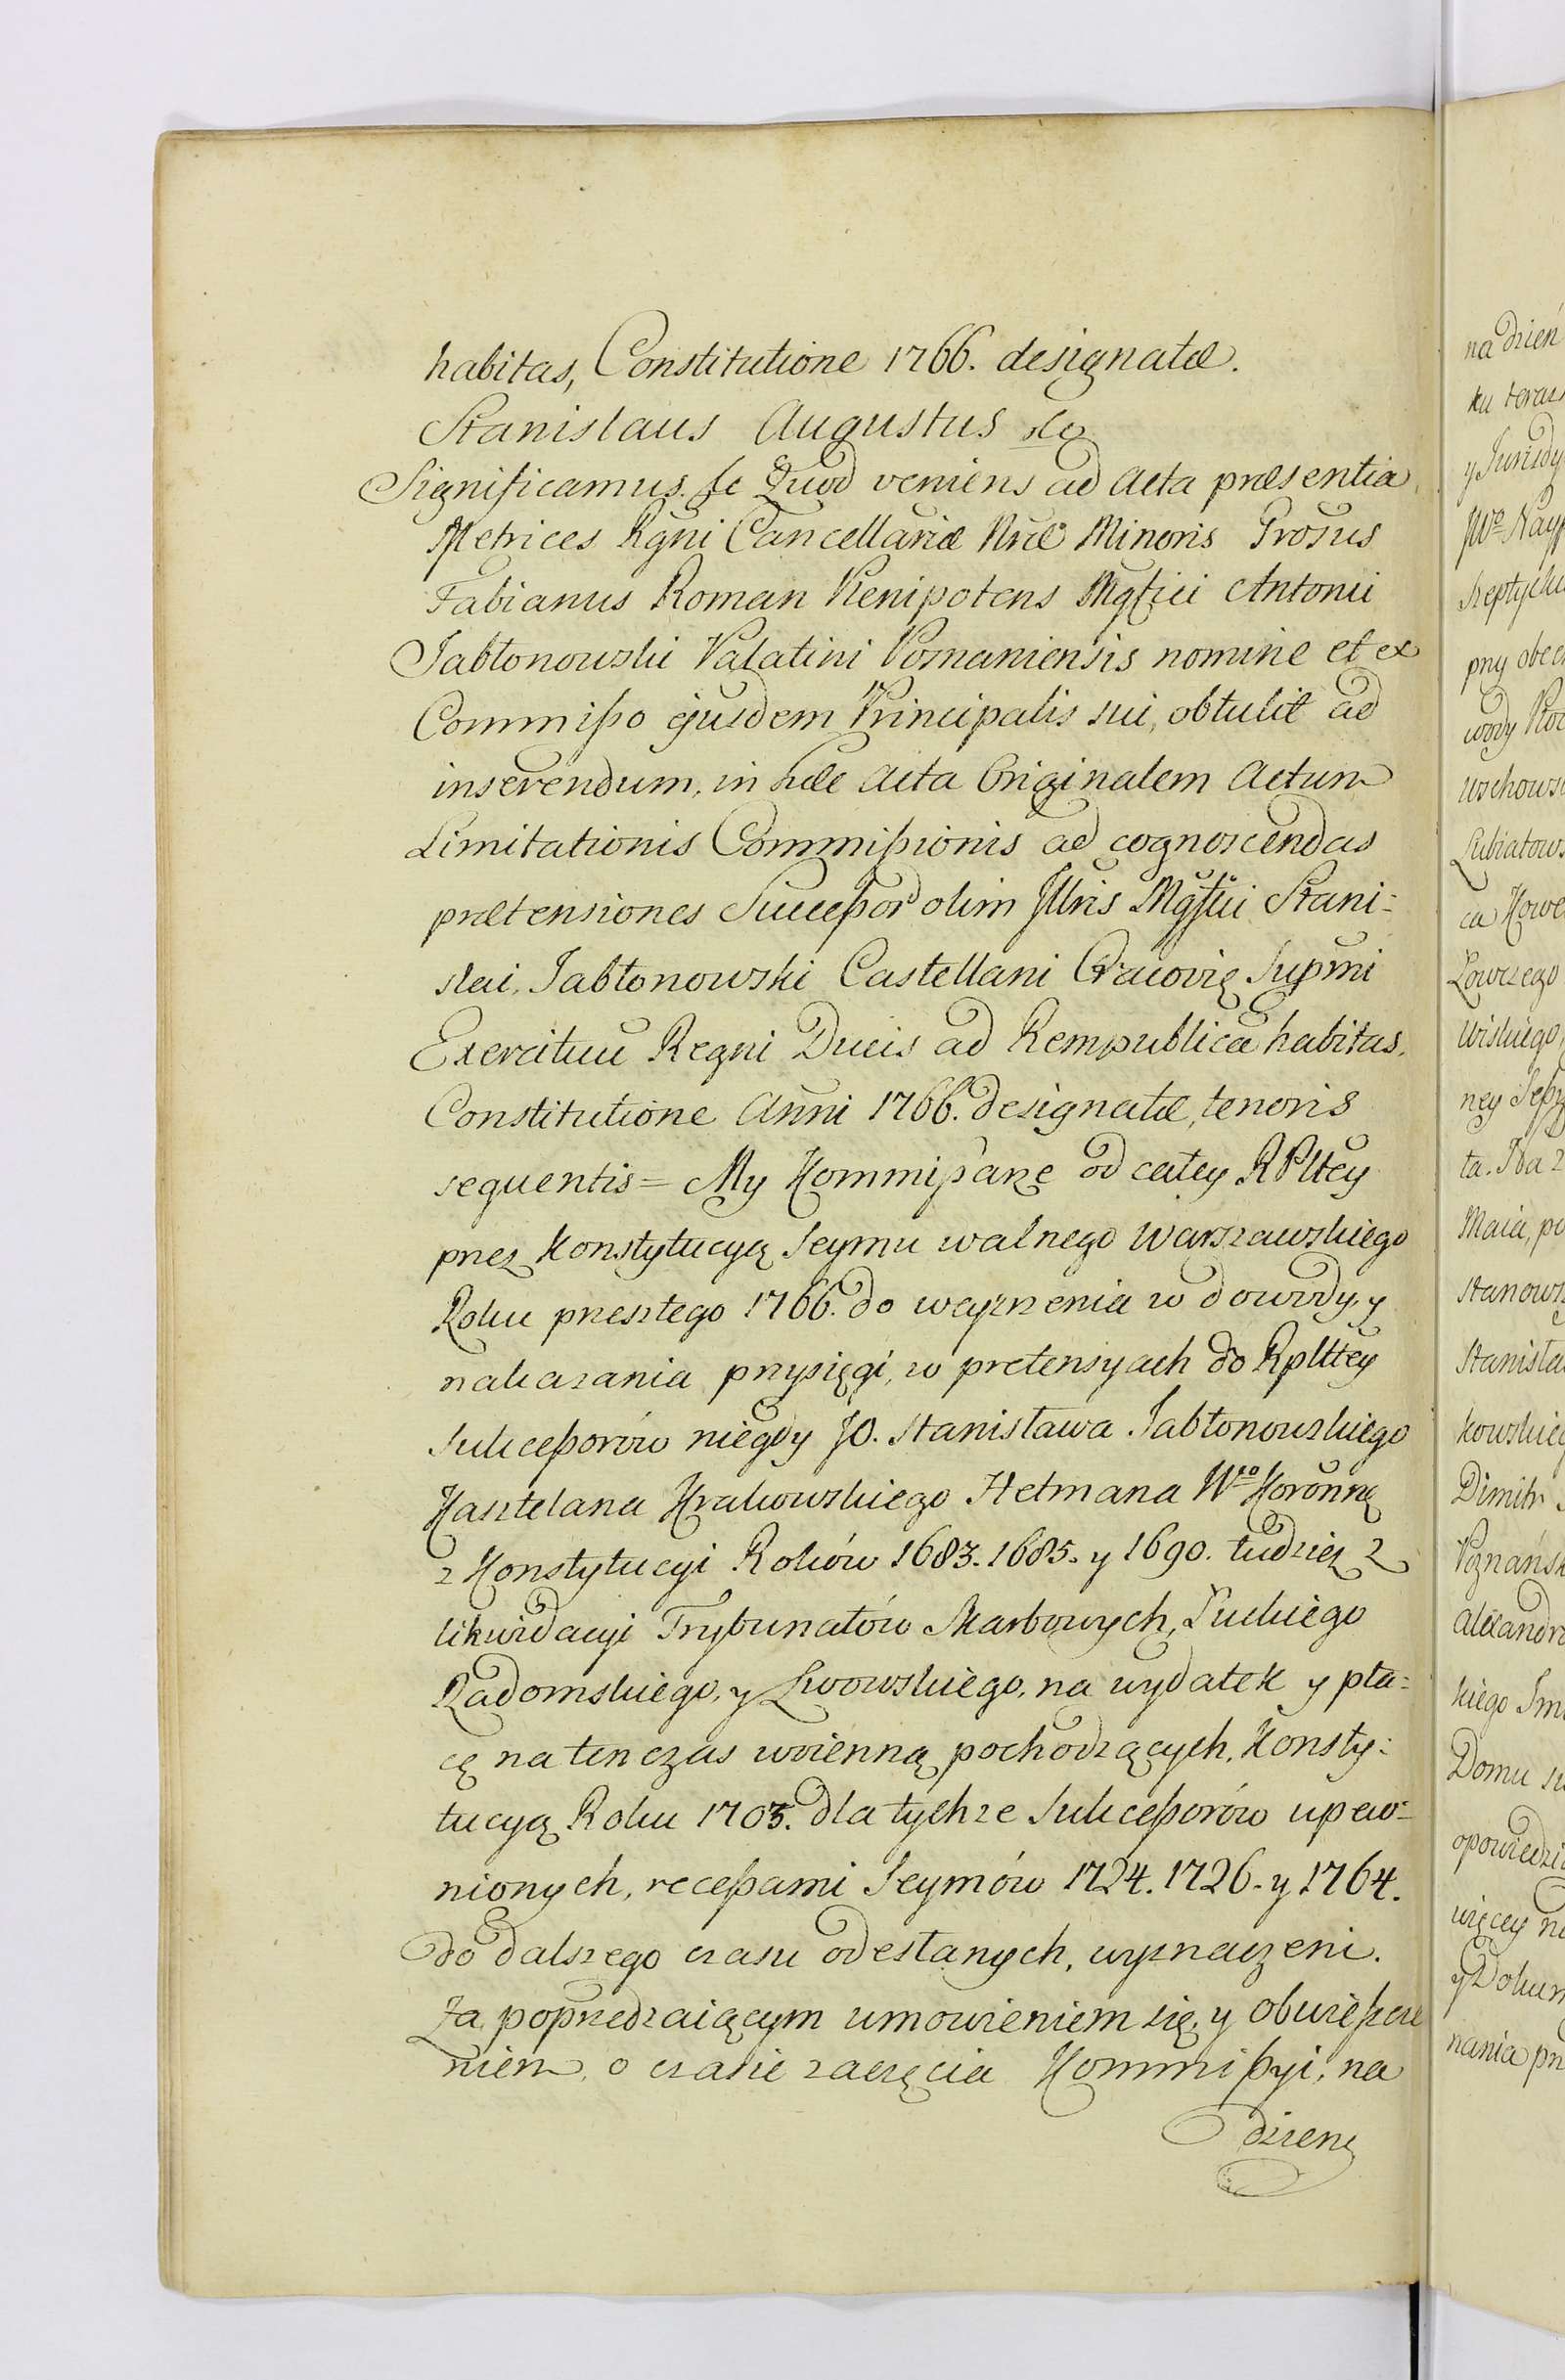 habitas, Constitutione 1766. designatæ.
Stanislaus Augustus &c
Significamus. &c Quod veniens ad Acta præsentia
Metrices Rgni Cancellariæ Nræ Minoris Grosus
Fabianus Roman Plenipotens Mgfici Antonii
Jabłonowski Palatini Posnaniensis nomine et ex
Commißo ejusdem Principalis sui, obtulit ad
inserendum, in hæc Acta Originalem Actum
Limitationis Commißionis ad cognoscendas
prætensiones Succeßor olim Illris Mgfici Stani=
slai Jabłonowski Castellani Cracovię Supmi
Exercituũ Regni Ducis ad Rempublicã habitas.
Constitutione Anni 1766. designatæ, tenoris
sequentis = My Kommißarze od całey RPltey
przez Konstytucyą Seymu walnego Warszawskiego
Roku przeszłego 1766. do weyrzenia w dowody, y
nakazania przysięgi, w pretensyach do Rplttey
Sukceßorów niegdy JO. Stanisława Jabłonowskiego
Kasztelana Krakowskiego Hetmana Wgo Koronng
z Konstytucyi Roków 1683. 1685. y 1690. tudzież z
likwidacyi Trybunałów Skarbowych, Łuckiego
Radomskiego, y Lwowskiego, na wydatek y pła=
cę na ten czas woienną pochodzących, Konsty=
tucyą Roku 1703. dla tychże Sukceßorów upew=
nionych, receßami Seymów 1724. 1726. y 1764.
do dalszego czasu odesłanych, wyznaczeni.
Za poprzedzaiącym umowieniem się, y obwießcze
niem, o czasie zaczęcia Kommißyi, na
dzień
na dzień
ku teraz
y Jurisdy
JWo Nayp
Szeptycki
pny obec
wody
wschows
Lubiatows
ca Kowe
Łowczego
Wiskiego
ney Seßy
ta. Dla 2
Maia, po
stanows
Stanisła
kowskieg
Dimitr
Poznańsk
Alexandr
kiego Jm
Domu
opowiedzi
więcey
y Dokum
nania